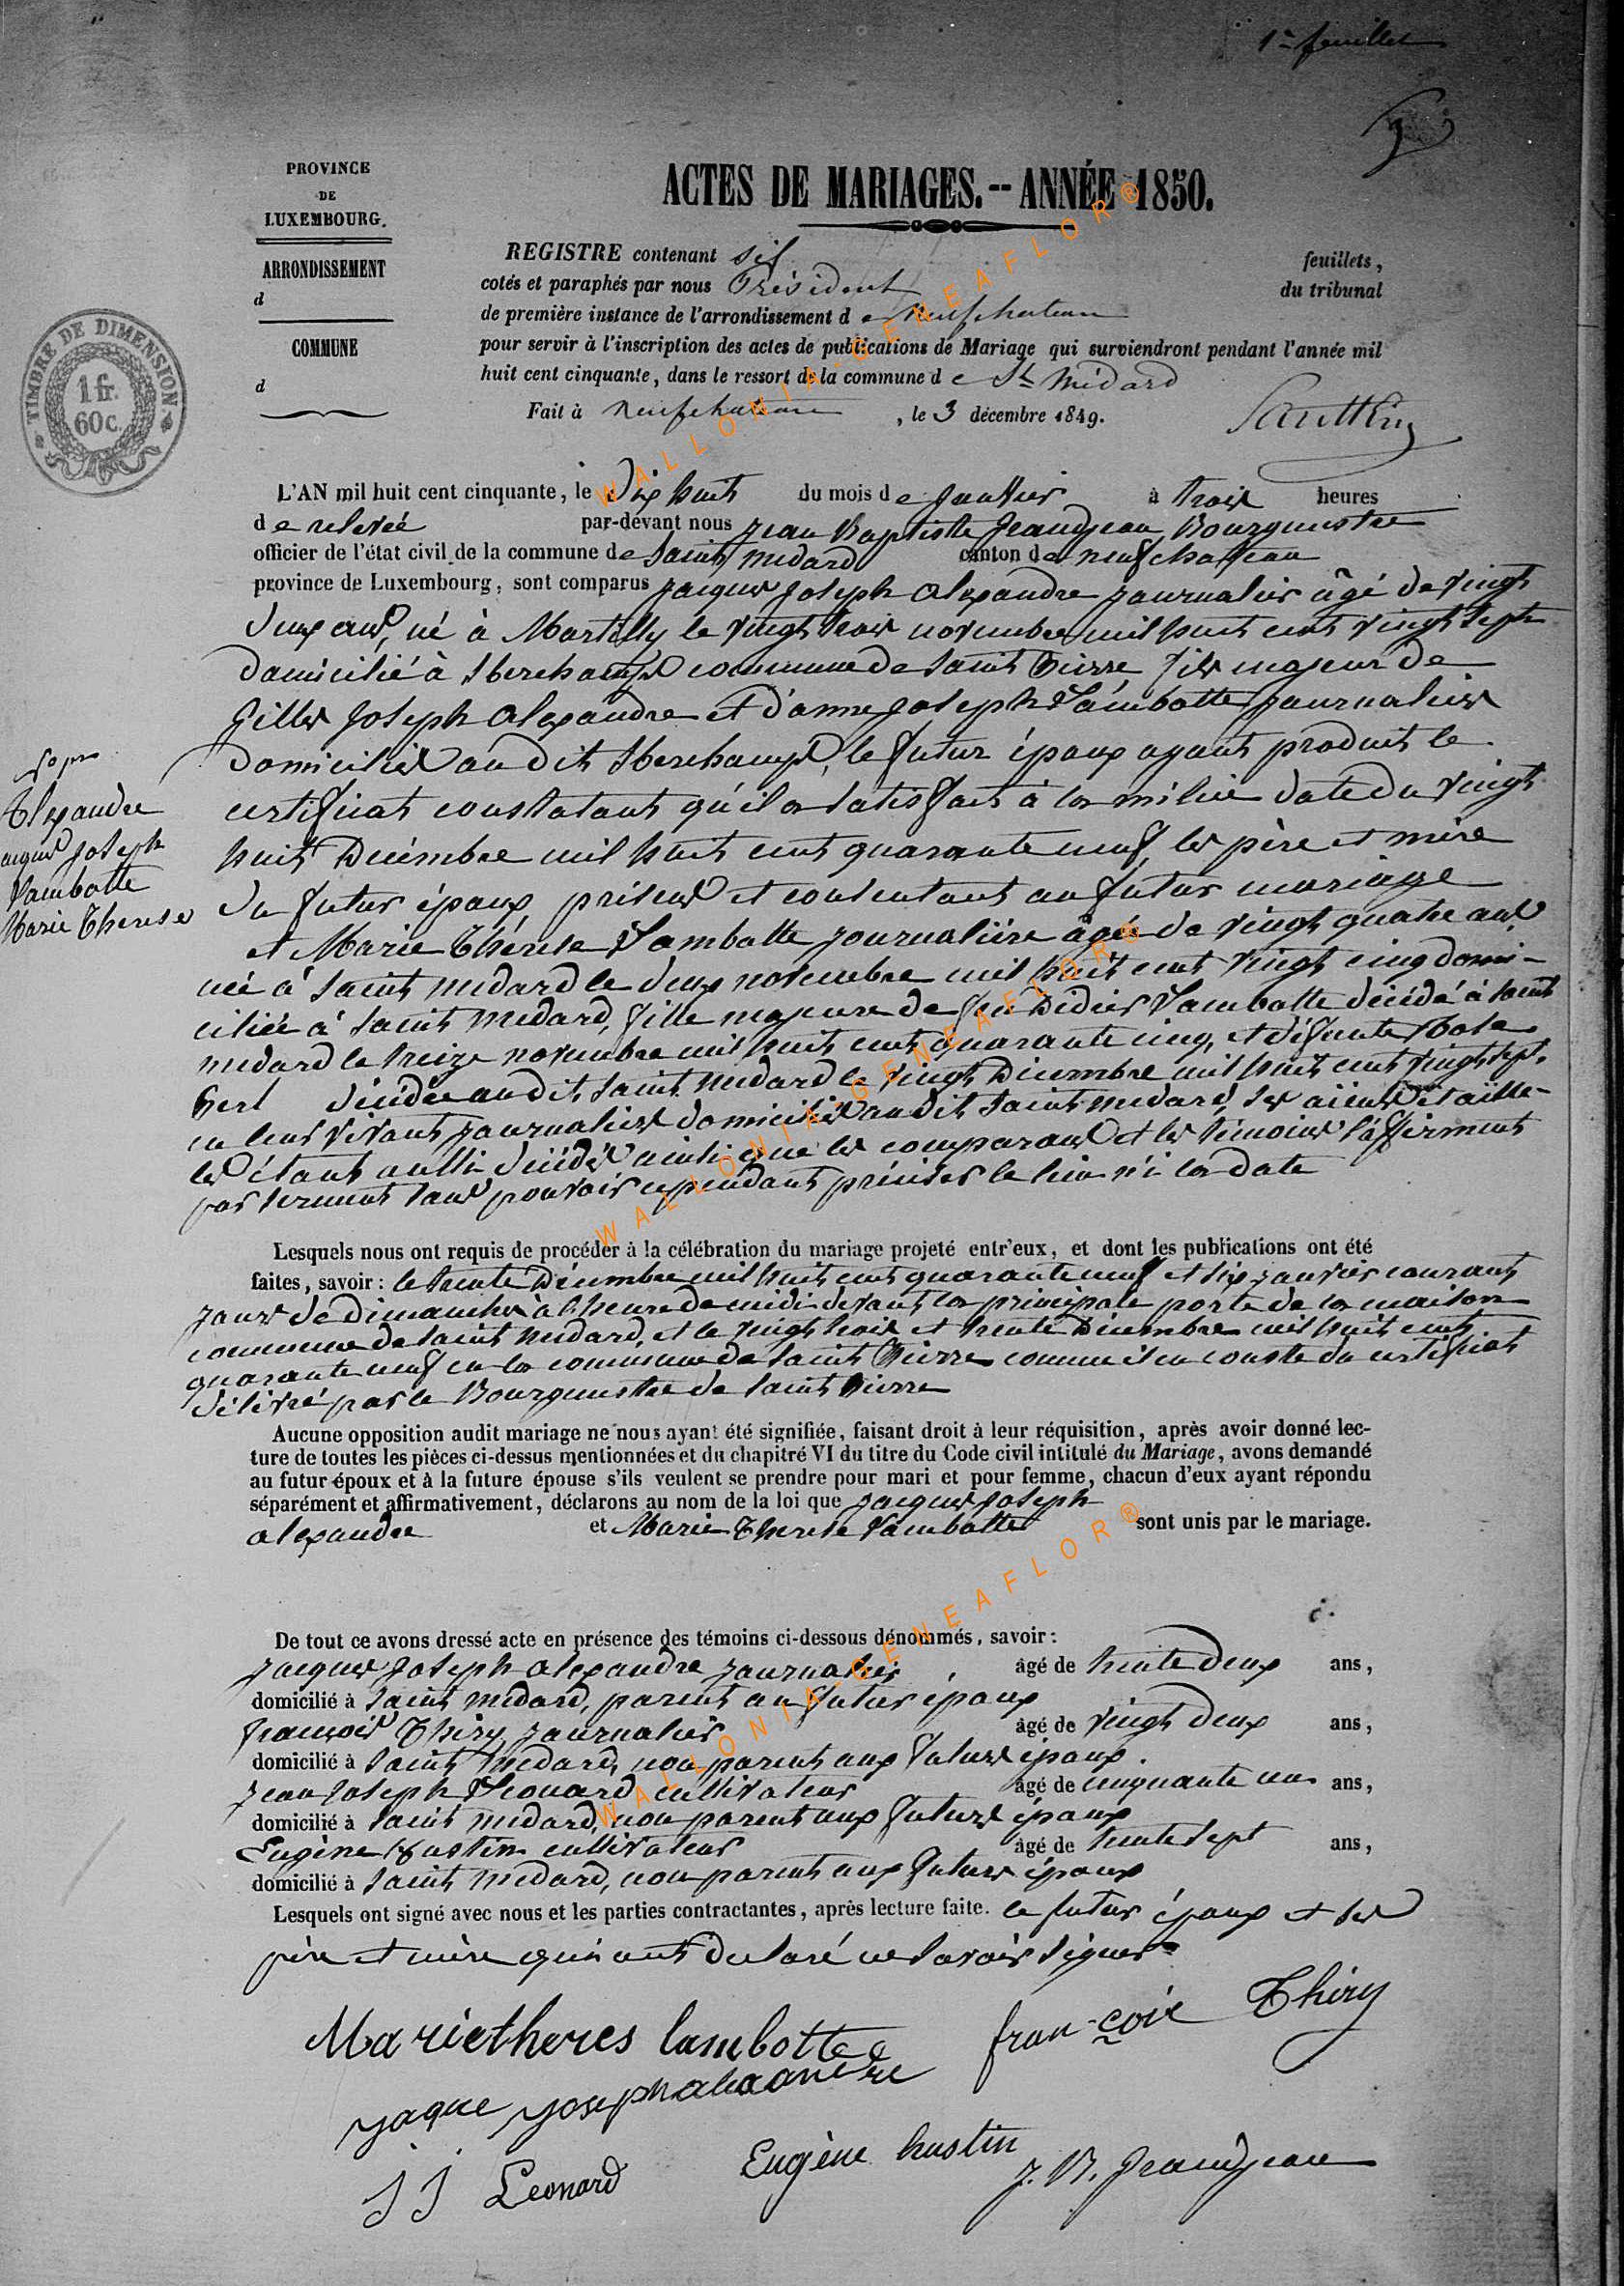 1er feuillet
PROVINCE
DE
LUXEMBOURG.
ARRONDISSEMENT
d
COMMUNE
d
TIMBRE DE DIMENSION
1 fr.
60 c.
ACTES DE MARIAGES. -- ANNÉE 1850.
REGISTRE contenant six feuillets,
cotés et paraphés par nous Président du tribunal
de première instance de l'arrondissement de Neufchateau
pour servir à l'inscription des actes de publications de Mariage qui surviendront pendant l'année mil
huit cent cinquante, dans le ressort de la commune de St Médard
Fait à Neufchateau, le 3 décembre 1849.
L'AN mil huit cent cinquante, le dix huit du mois de janvier à trois heures
de relevée par-devant nous jean Baptiste Grandjean, Bourgmestre
officier de l'état civil de la commune de Saint Médard canton de neufchateau
province de Luxembourg, sont comparus jacques joseph alexandre journalier âgé de vingt
deux ans, né à Martilly le vingt trois novembre mil huit cent vingt sept
domicilié à Sberchamps commune de Saint Pierre, fils majeur de
gilles joseph alexandre et d'anne joseph Lambotte journaliers
domiciliés au dit Sberchamps, le futur époux ayant produit le
certificat constatant qu'il a satisfait à la milice daté du vingt
huit Décembre mil huit cent quarante neuf, les père et mère
du futur époux, présens et consentant au futur mariage
et Marie Thérèse Lambotte journalière âgée de vingt quatre ans
née à Saint médard le deux novembre mil huit cent vingt cinq domi-
ciliée à Saint médard, fille majeure de feu Didier Lambotte décédé à Saint
médard le treize novembre mil huit cent quarante cinq, et défunte
décédée au dit Saint médard le vingt Décembre mil huit cent vingt sept,
en leur vivant journaliers domiciliés au dit Saint médard, ses aïeuls et aïeu-
les étant aussi décédés ainsi que les comparans et les témoins l'affirment
par serment sans pouvoir cependant préciser le lieu n'i la date
Lesquels nous ont requis de procéder à la célébration du mariage projeté entr'eux, et dont les publications ont été
faites, savoir: le trente Décembre mil huit cent quarante neuf et six janvier courant
jours de Dimanche à l'heure de midi devant la principale porte de la maison
commune de Saint médard, et le vingt trois et trente Décembre mil huit cent
quarante neuf en la commune de Saint Pierre comme il en conste du certificat
délivré par le Bourgmestre de Saint Pierre
Aucune opposition audit mariage ne nous ayant été signifiée, faisant droit à leur réquisition, après avoir donné lec-
ture de toutes les pièces ci-dessus mentionnées et du chapitre VI du titre du Code civil intitulé du Mariage, avons demandé
au futur époux et à la future épouse s'ils veulent se prendre pour mari et pour femme, chacun d'eux ayant répondu
séparément et affirmativement, déclarons au nom de la loi que jacques joseph
alexandre et Marie Therese Lambotte sont unis par le mariage.
De tout ce avons dressé acte en présence des témoins ci-dessous dénommés, savoir:
jacques joseph alexandre journalier, âgé de trente deux ans,
domicilié à Saint médard, parent au futur époux
françois Thiry journalier âgé de vingt deux ans,
domicilié à Saint médard, non parent aux futurs époux.
jean joseph Léonard cultivateur âgé de cinquante un ans,
domicilié à Saint médard, non parent aux futurs époux
Eugène hustin cultivateur âgé de trente sept ans,
domicilié à Saint médard, non parent aux futurs époux
Lesquels ont signé avec nous et les parties contractantes, après lecture faite. le futur époux et ses
père et mère qui ont déclaré ne savoir signer
Alexandre
acques joseph
Lambotte
Marie Therese
Marietheres lambotte
françois Thiry
jaque josephalexandre
J J Leonard
Eugène hustin
J. B. Grandjean
WALLONIA-GENEAFLOR®
WALLONIA-GENEAFLOR®
WALLONIA-GENEAFLOR®